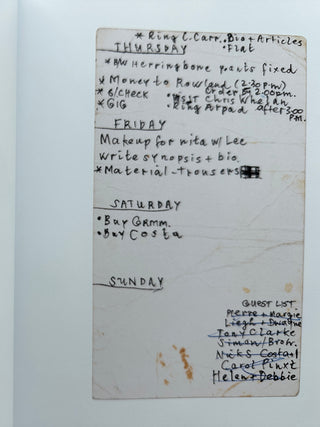 * Ring C. Carr. • Bio + Articles
• Flat
THURSDAY
* B/W Herringbone pants fixed
* Money to Rowland (2:30pm)
* G/CHECK Order by 2.00pm.
* GIG • Chris Whelan
• Ring Arpad after 3.00 P.M.
FRIDAY
Makeup for nita w/ Lee
Write synopsis + bio.
* Material - trousers
SATURDAY
• Buy Gramm.
• Buy Costa
SUNDAY
GUEST LIST
Pierre + Margie
Liegh + Dwayne
Tony Clarke
Simon / Bror.
Nick S Costa +1
Carol Pinxt
Helen + Debbie